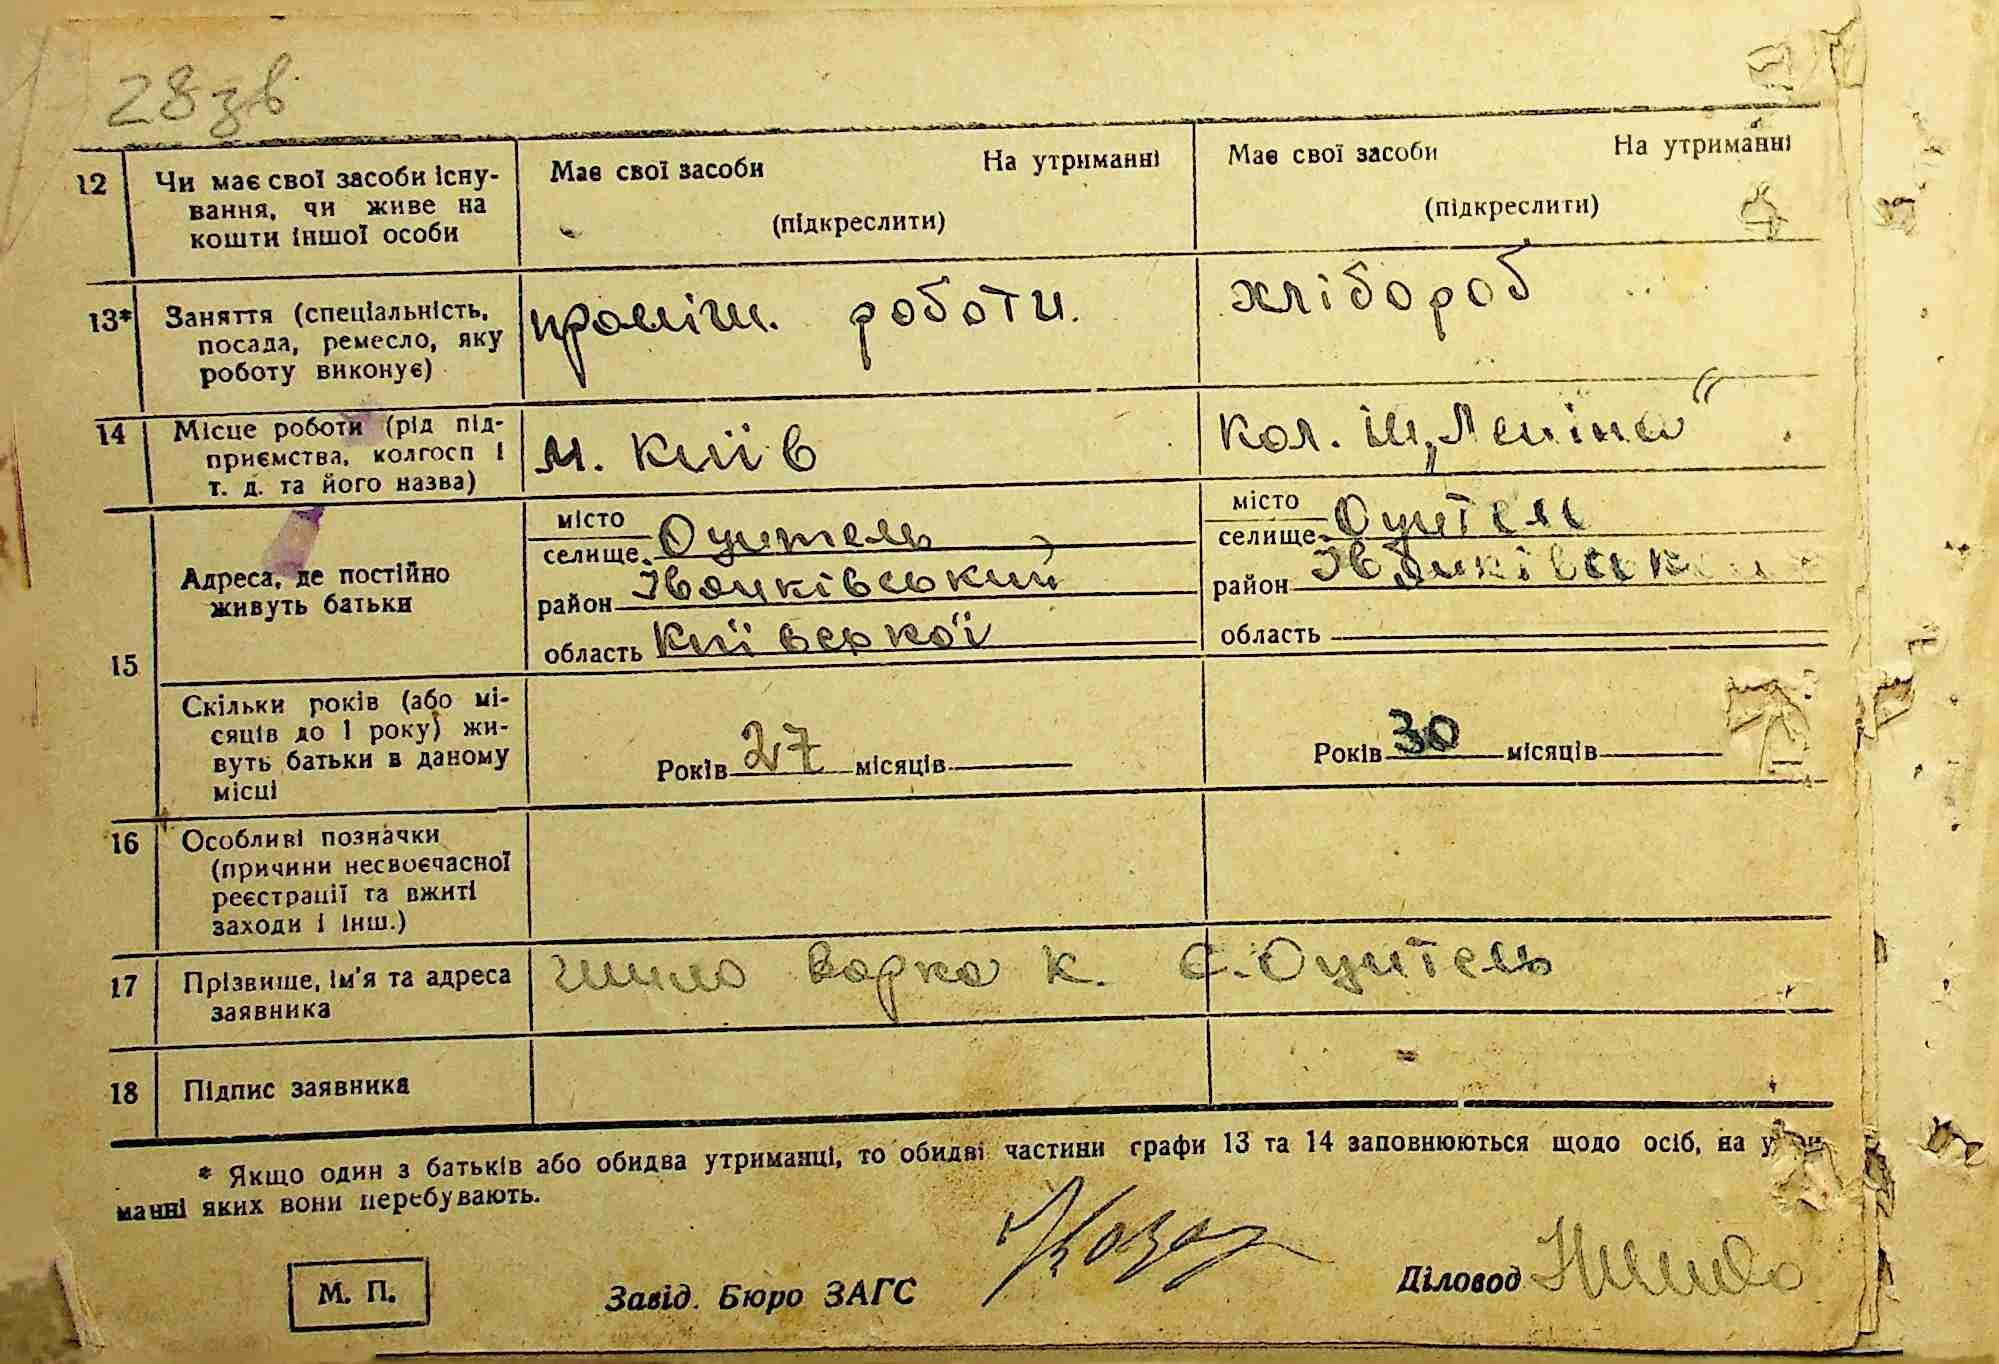 28 зв
12 Чи має свої засоби існу-
вання, чи живе на
кошти іншої особи
Має свої засоби На утриманні
(підкреслити)
Має свої засоби На утриманні
(підкреслити)
13* Заняття (спеціальність,
посада, ремесло, яку
роботу виконує)
роботи.
хлібороб
14 Місце роботи (рід під-
приємства, колгосп і
т. д. та його назва)
м. Київ
кол. ім „Леніна“
15
Адреса, де постійно
живуть батьки
місто
селище Оцитель
район Іванківський
область Київської
місто
селище Оцитель
район Іванківський
область
Скільки років (або мі-
сяців до 1 року) жи-
вуть батьки в даному
місці
Років 27 місяців
Років 30 місяців
16 Особливі позначки
(причини несвоєчасної
реєстрації та вжиті
заходи і інш.)
17 Прізвище, ім'я та адреса
заявника
Варка К. с. Оцитель
18 Підпис заявника
* Якщо один з батьків або обидва утриманці, то обидві частини графи 13 та 14 заповнюються щодо осіб, на утри
манні яких вони перебувають.
М. П.
Завід. Бюро ЗАГС
Діловод